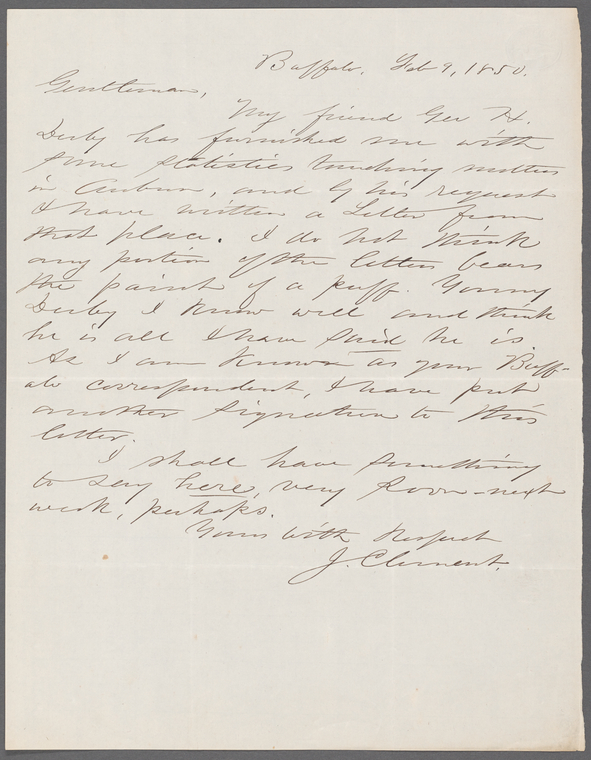 Buffalo, Feb 9, 1850.
Gentlemen,
My friend Geo H.
Derby has furnished me with
some statistics touching matters
in Auburn, and by his request
I have written a Letter from
that place. I do not think
any portion of the letter bears
the paint of a puff. Young
Derby I know well and think
he is all I have said he is.
As I am known as your Buff-
alo correspondent, I have put
another signature to this
letter.
I shall have something
to say here, very soon - next
week, perhaps.
Yours with Respect
J. Clement.